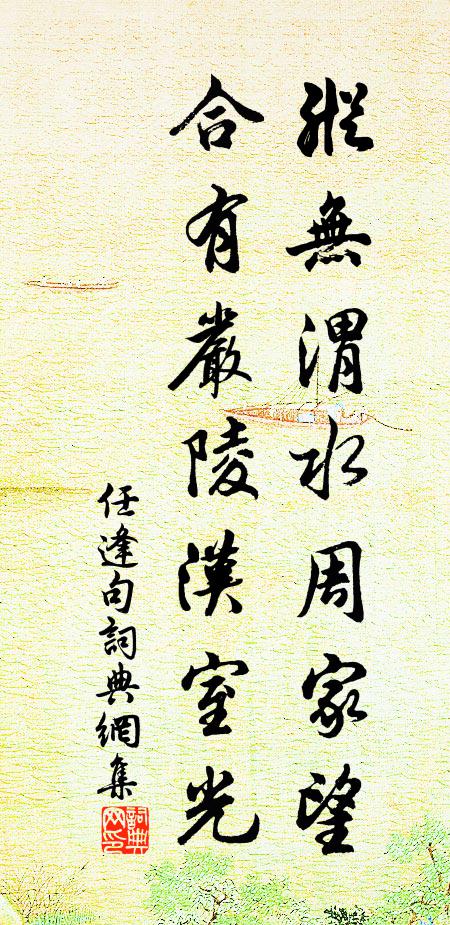 縱無渭水周家望
合有嚴陵漢室光
任逢句詞典網集
詞典網印